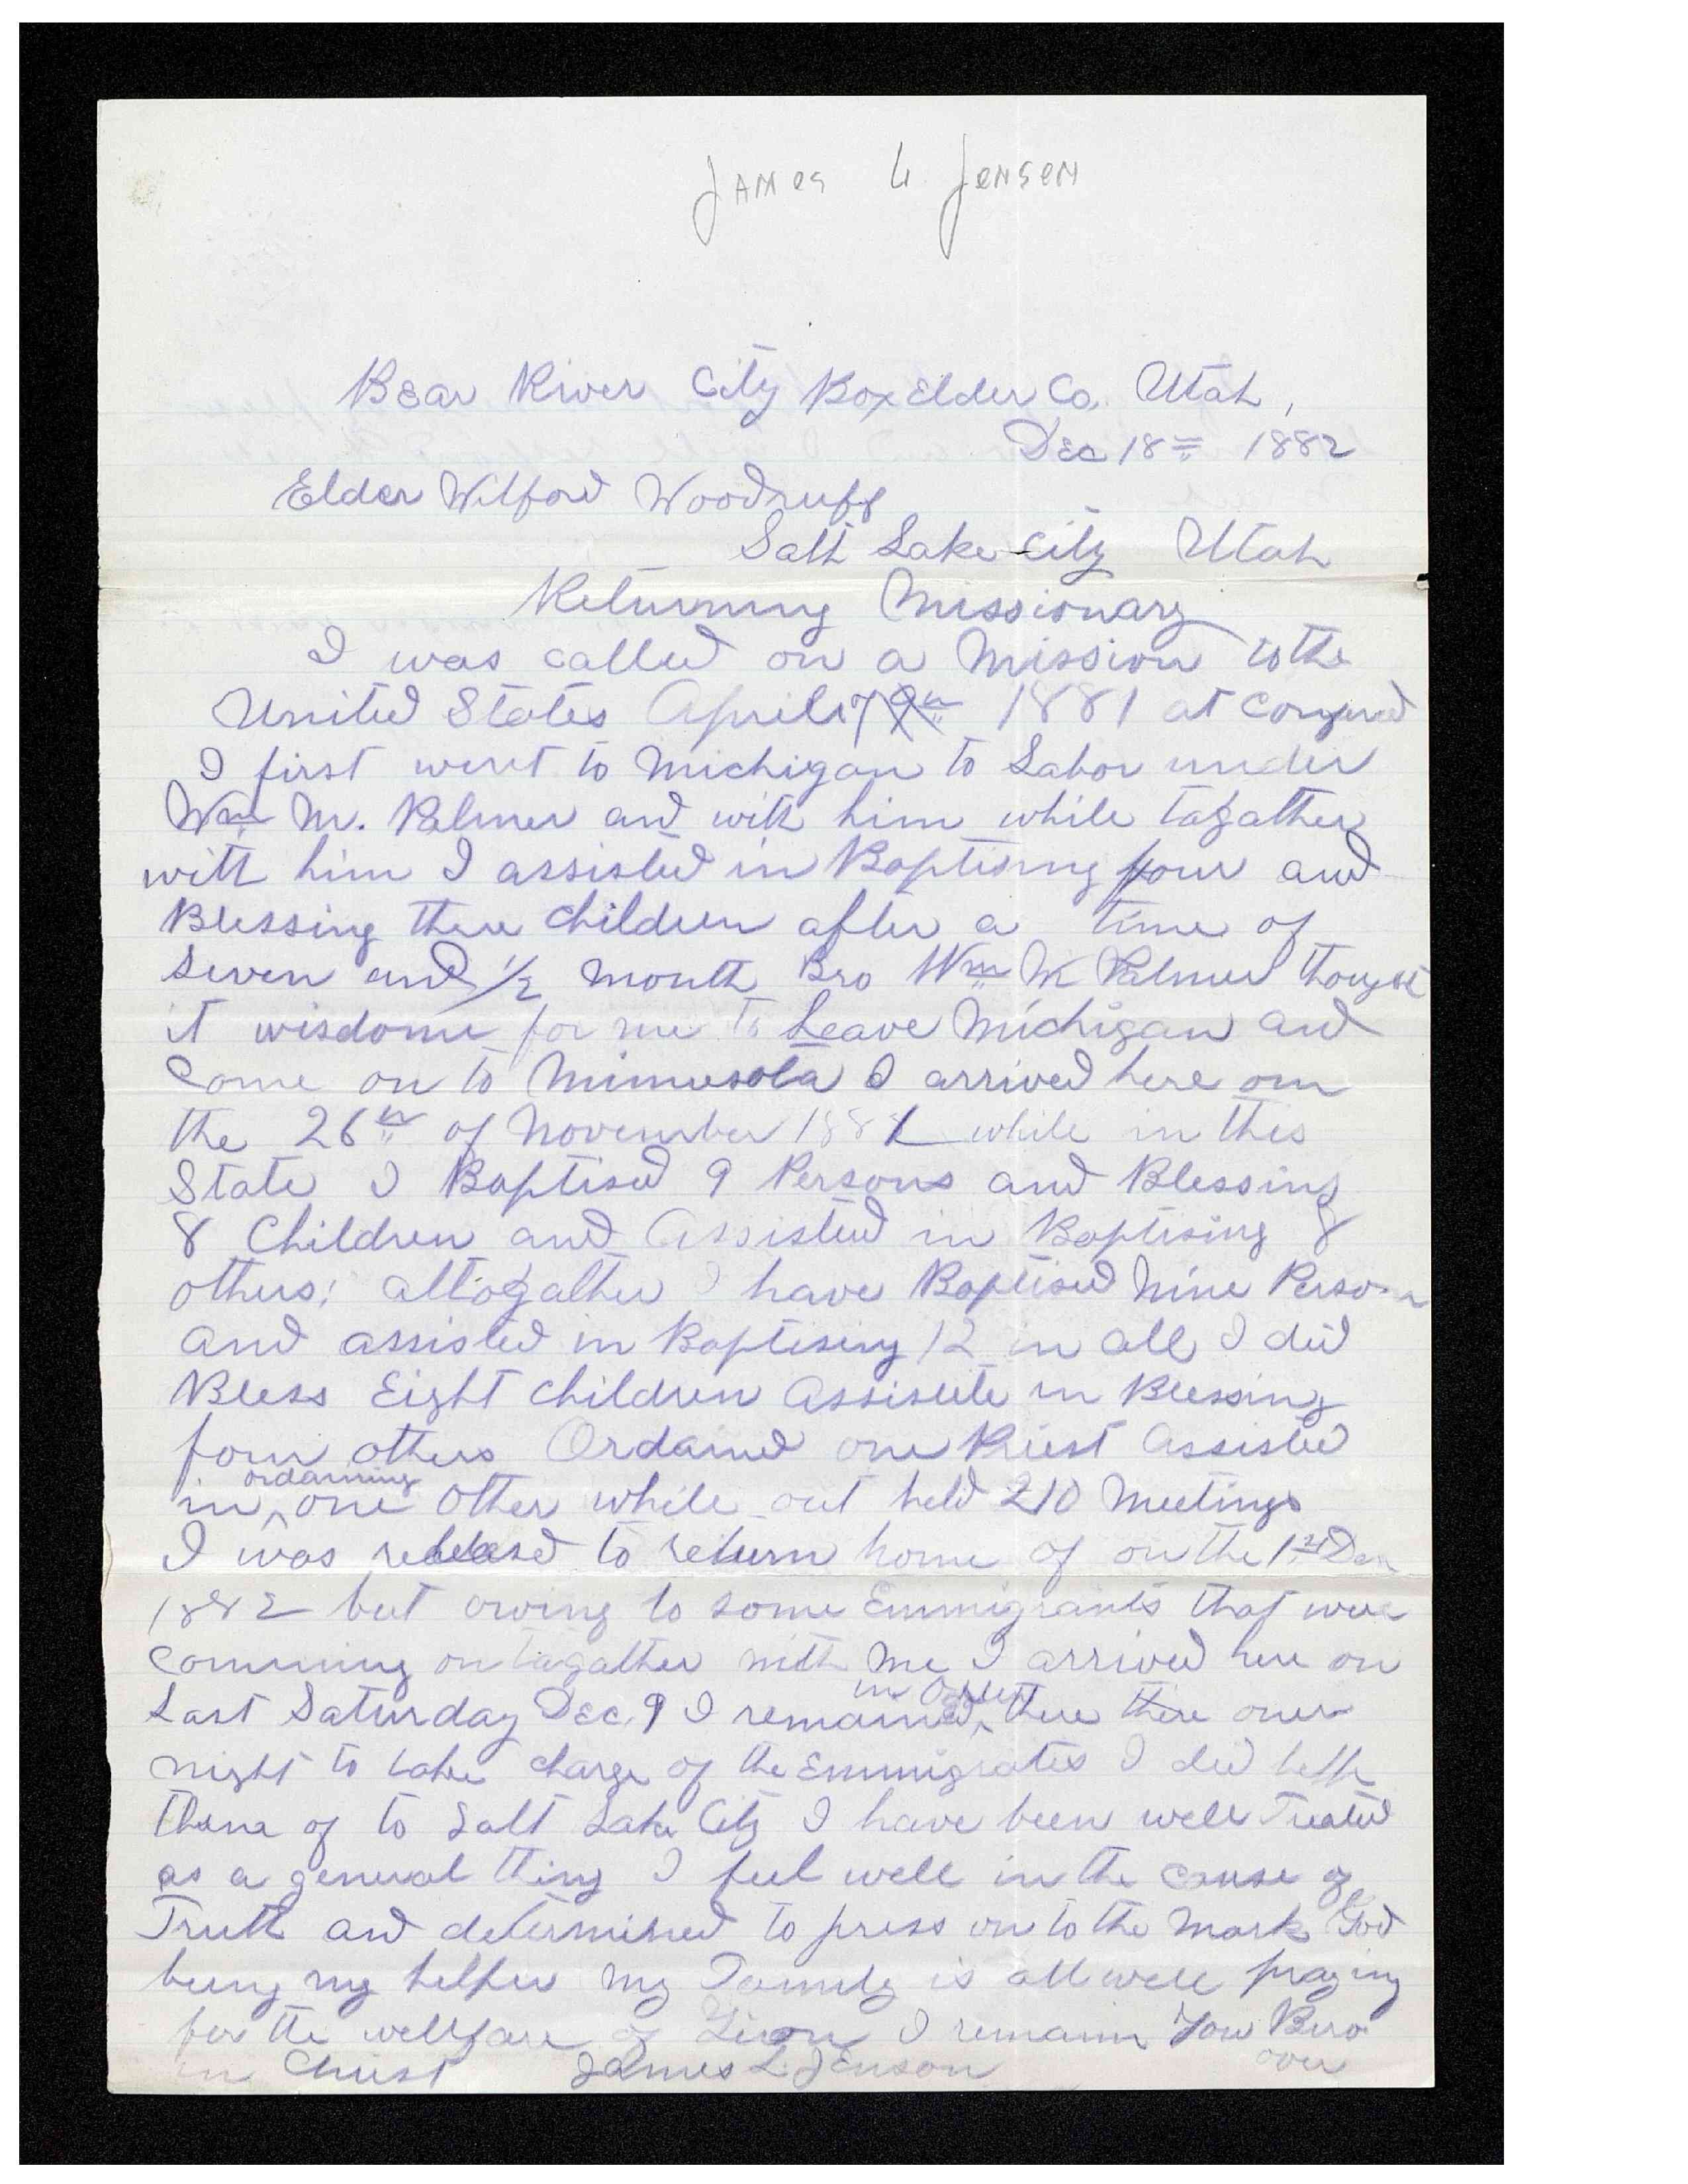 James L Jensen
Bear River City Box Elder Co, Utah,
Dec 18th 1882
Elder Wilford Woodruff
Salt Lake City Utah
Returning Missionary
I was called on a Mission to the
United States April 7 1881 at
I first went to Michigan to Labor under
Wm M. Palmer and with him while togather
with him I assisted in Baptising four and
Blessing there children after a time of
Seven and 1/2 month Bro Wm M Palmer thought
it wisdome for me to Leave Michigan and
Come on to Minnesota I arrived here on
the 26th of November 1881 while in this
State I Baptised 9 Persons and Blessing
8 Children and Assisted in Baptising 8
others; altogather I have Baptised Nine Person
and assisted in Baptising 12 in all I did
Bless Eight children Assistete in Blessing
four others Ordained one Priest Assisted
in ordaining one other while out held 210 Meetings
I was released to return home of on the 1st Dec
1882 but owing to some Emmigrants that were
comming on togather with me I arrived here on
Last Saturday Dec. 9 I remained in Ogden there there over
night to take charge of the Emmigrates I did help
them of to Salt Lake City I have been well Treated
as a general thing I feel well in the cause of
Truth and determined to press on to the mark God
being my helper my Family is all well praying
for the wellfare of Zion I remain Your Bero
in Christ James L. Jenson
over